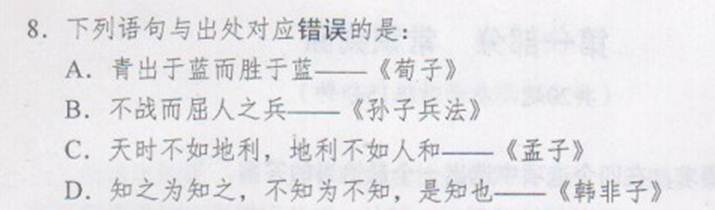 8. 下列语句与出处对应错误的是：
A. 青出于蓝而胜于蓝——《荀子》
B. 不战而屈人之兵——《孙子兵法》
C. 天时不如地利，地利不如人和——《孟子》
D. 知之为知之，不知为不知，是知也——《韩非子》